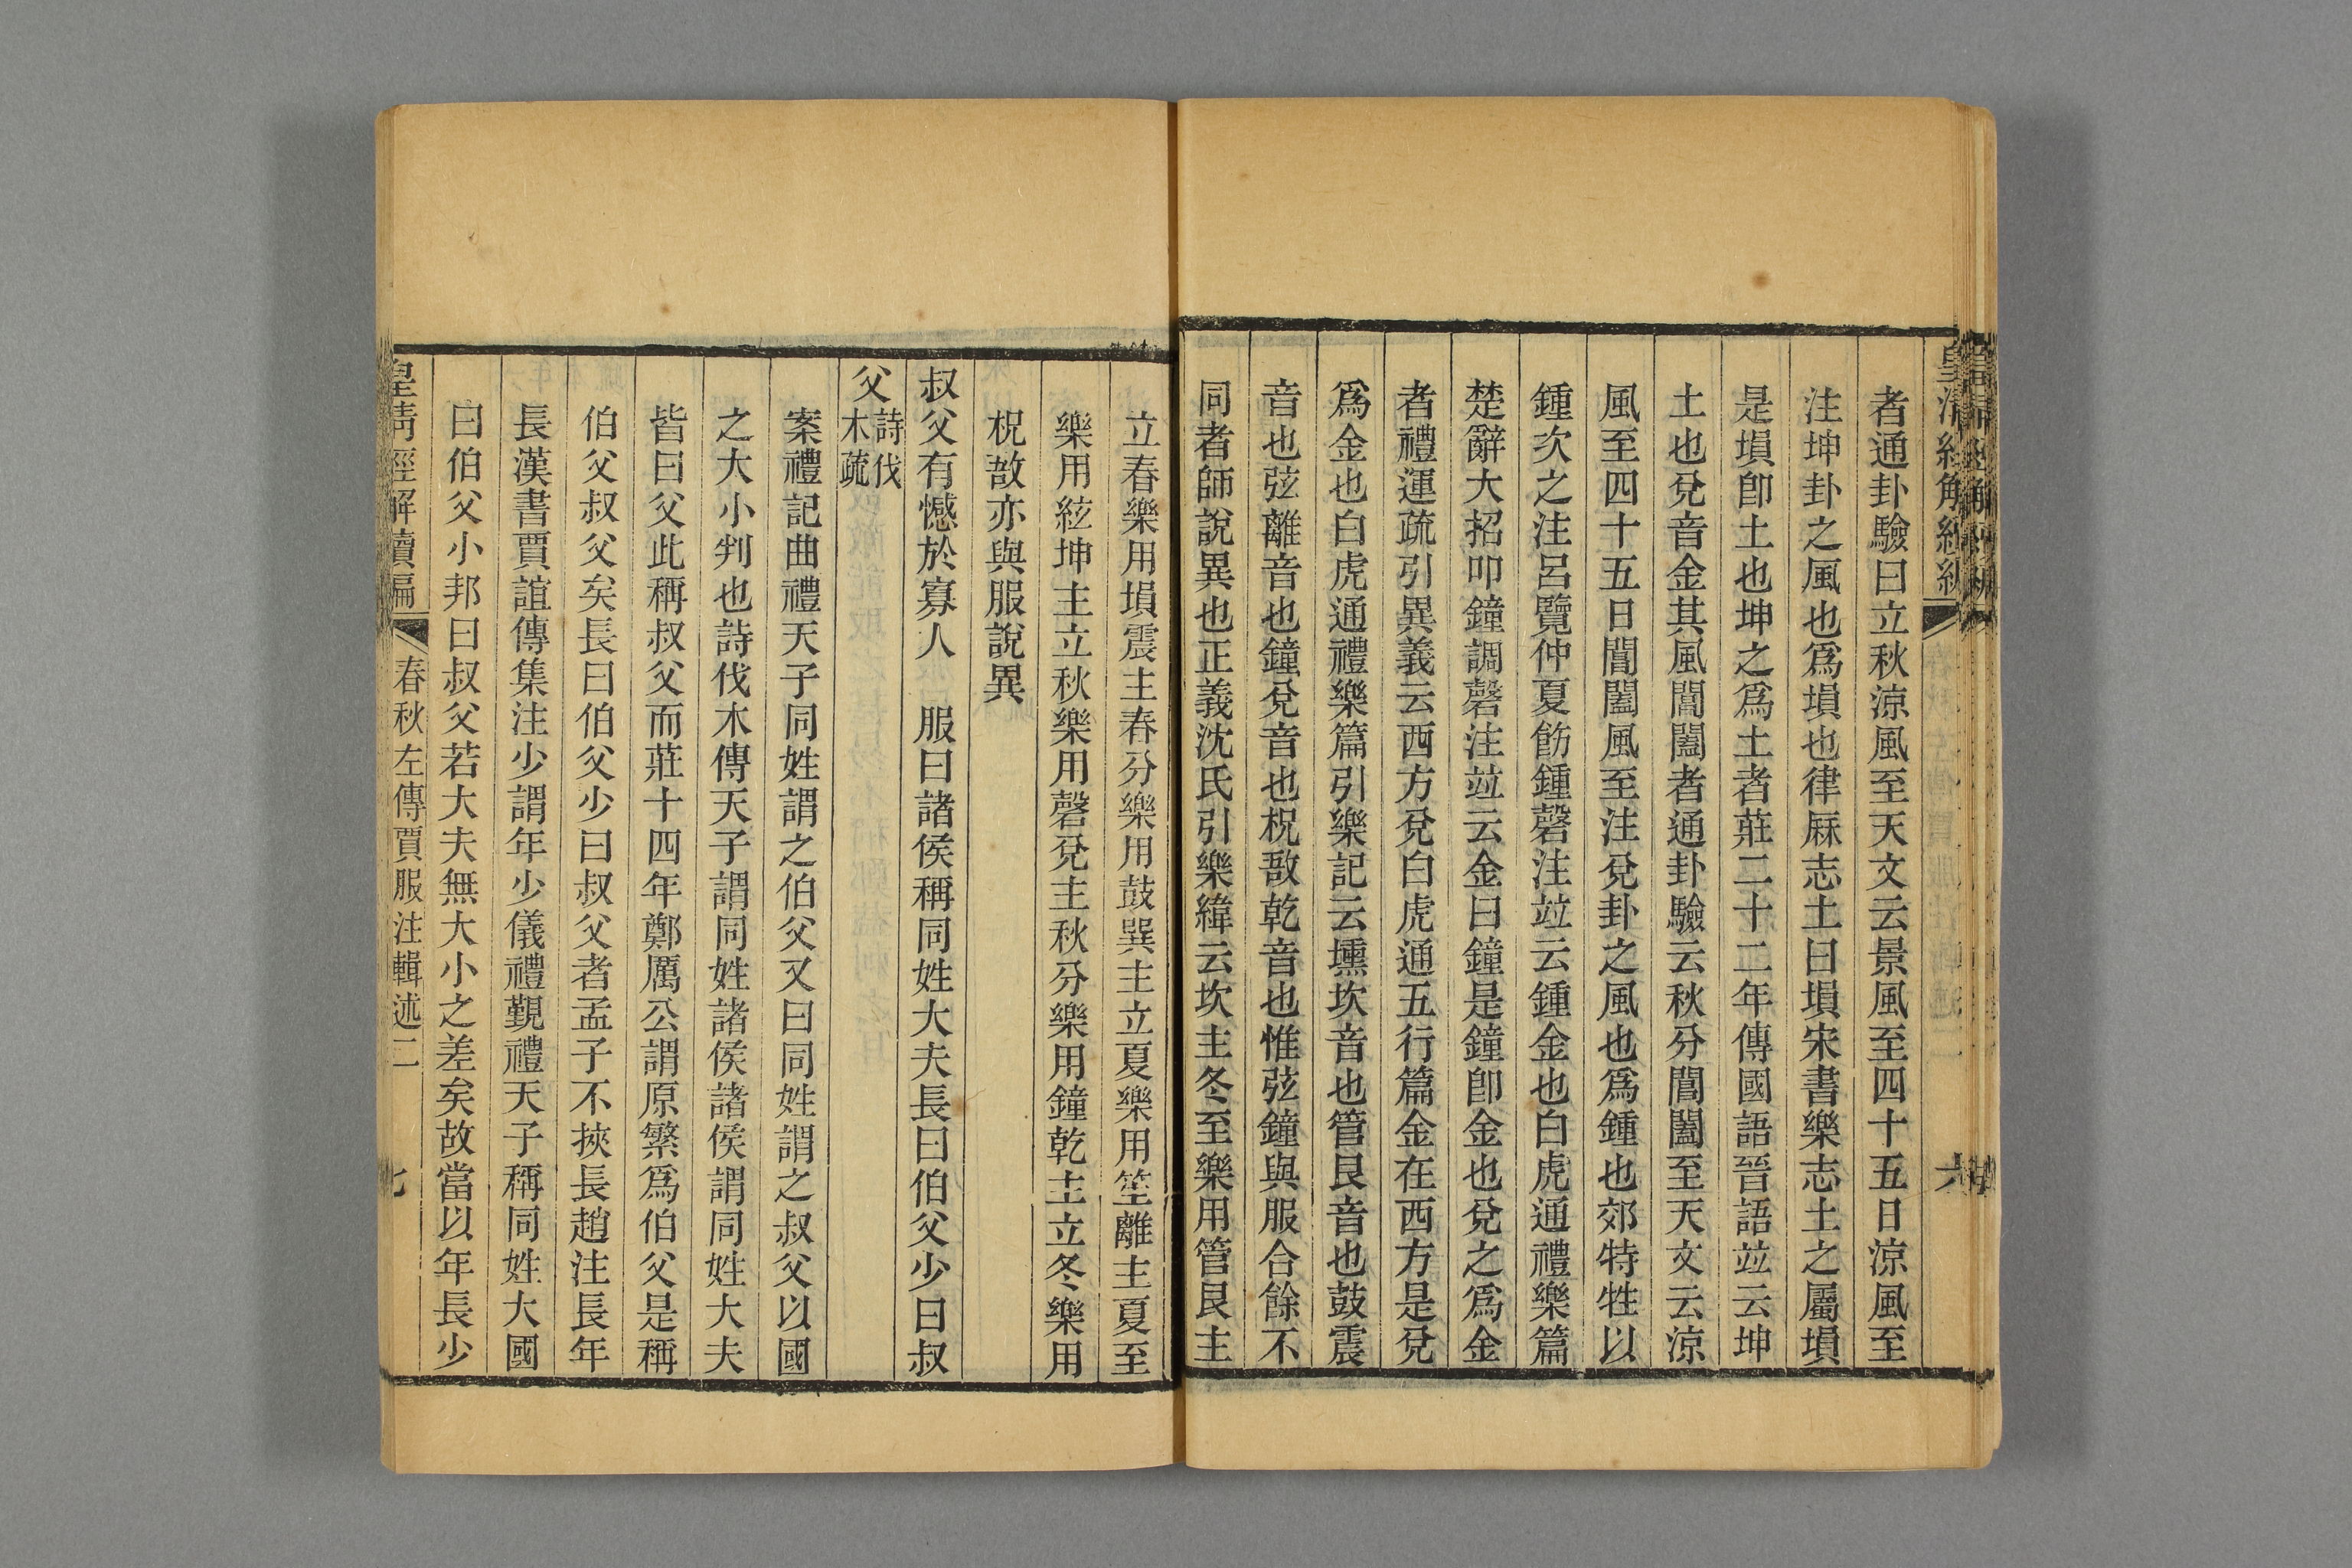 者通卦驗曰立秋涼風至天文云景風至四十五日涼風至
注坤卦之風也爲塤也律厤志土曰塤宋書樂志土之屬塤
是塤卽土也坤之爲土者莊二十二年傳國語晉語竝云坤
土也兌音金其風閶闔者通卦驗云秋分閶闔至天文云涼
風至四十五日閶闔風至注兌卦之風也爲鍾也郊特牲以
鍾次之注呂覽仲夏飭鍾磬注竝云鍾金也白虎通禮樂篇
楚辭大招叩鐘調磬注竝云金曰鐘是鐘卽金也兌之爲金
者禮運疏引異義云西方兌白虎通五行篇金在西方是兌
爲金也白虎通禮樂篇引樂記云壎坎音也管艮音也鼓震
音也弦離音也鐘兌音也柷敔乾音也惟弦鐘與服合餘不
同者師說異也正義沈氏引樂緯云坎主冬至樂用管艮主
立春樂用塤震主春分樂用鼓巽主立夏樂用笙離主夏至
樂用絃坤主立秋樂用磬兌主秋分樂用鐘乾主立冬樂用
柷敔亦與服說異
叔父有憾於寡人 服曰諸侯稱同姓大夫長曰伯父少曰叔
父詩伐木疏
案禮記曲禮天子同姓謂之伯父又曰同姓謂之叔父以國
之大小判也詩伐木傳天子謂同姓諸侯諸侯謂同姓大夫
皆曰父此稱叔父而莊十四年鄭厲公謂原繁爲伯父是稱
伯父叔父矣長曰伯父少曰叔父者孟子不挾長趙注長年
長漢書賈誼傳集注少謂年少儀禮覲禮天子稱同姓大國
曰伯父小邦曰叔父若大夫無大小之差矣故當以年長少
皇清經解續編 春秋左傳賈服注輯述二 七